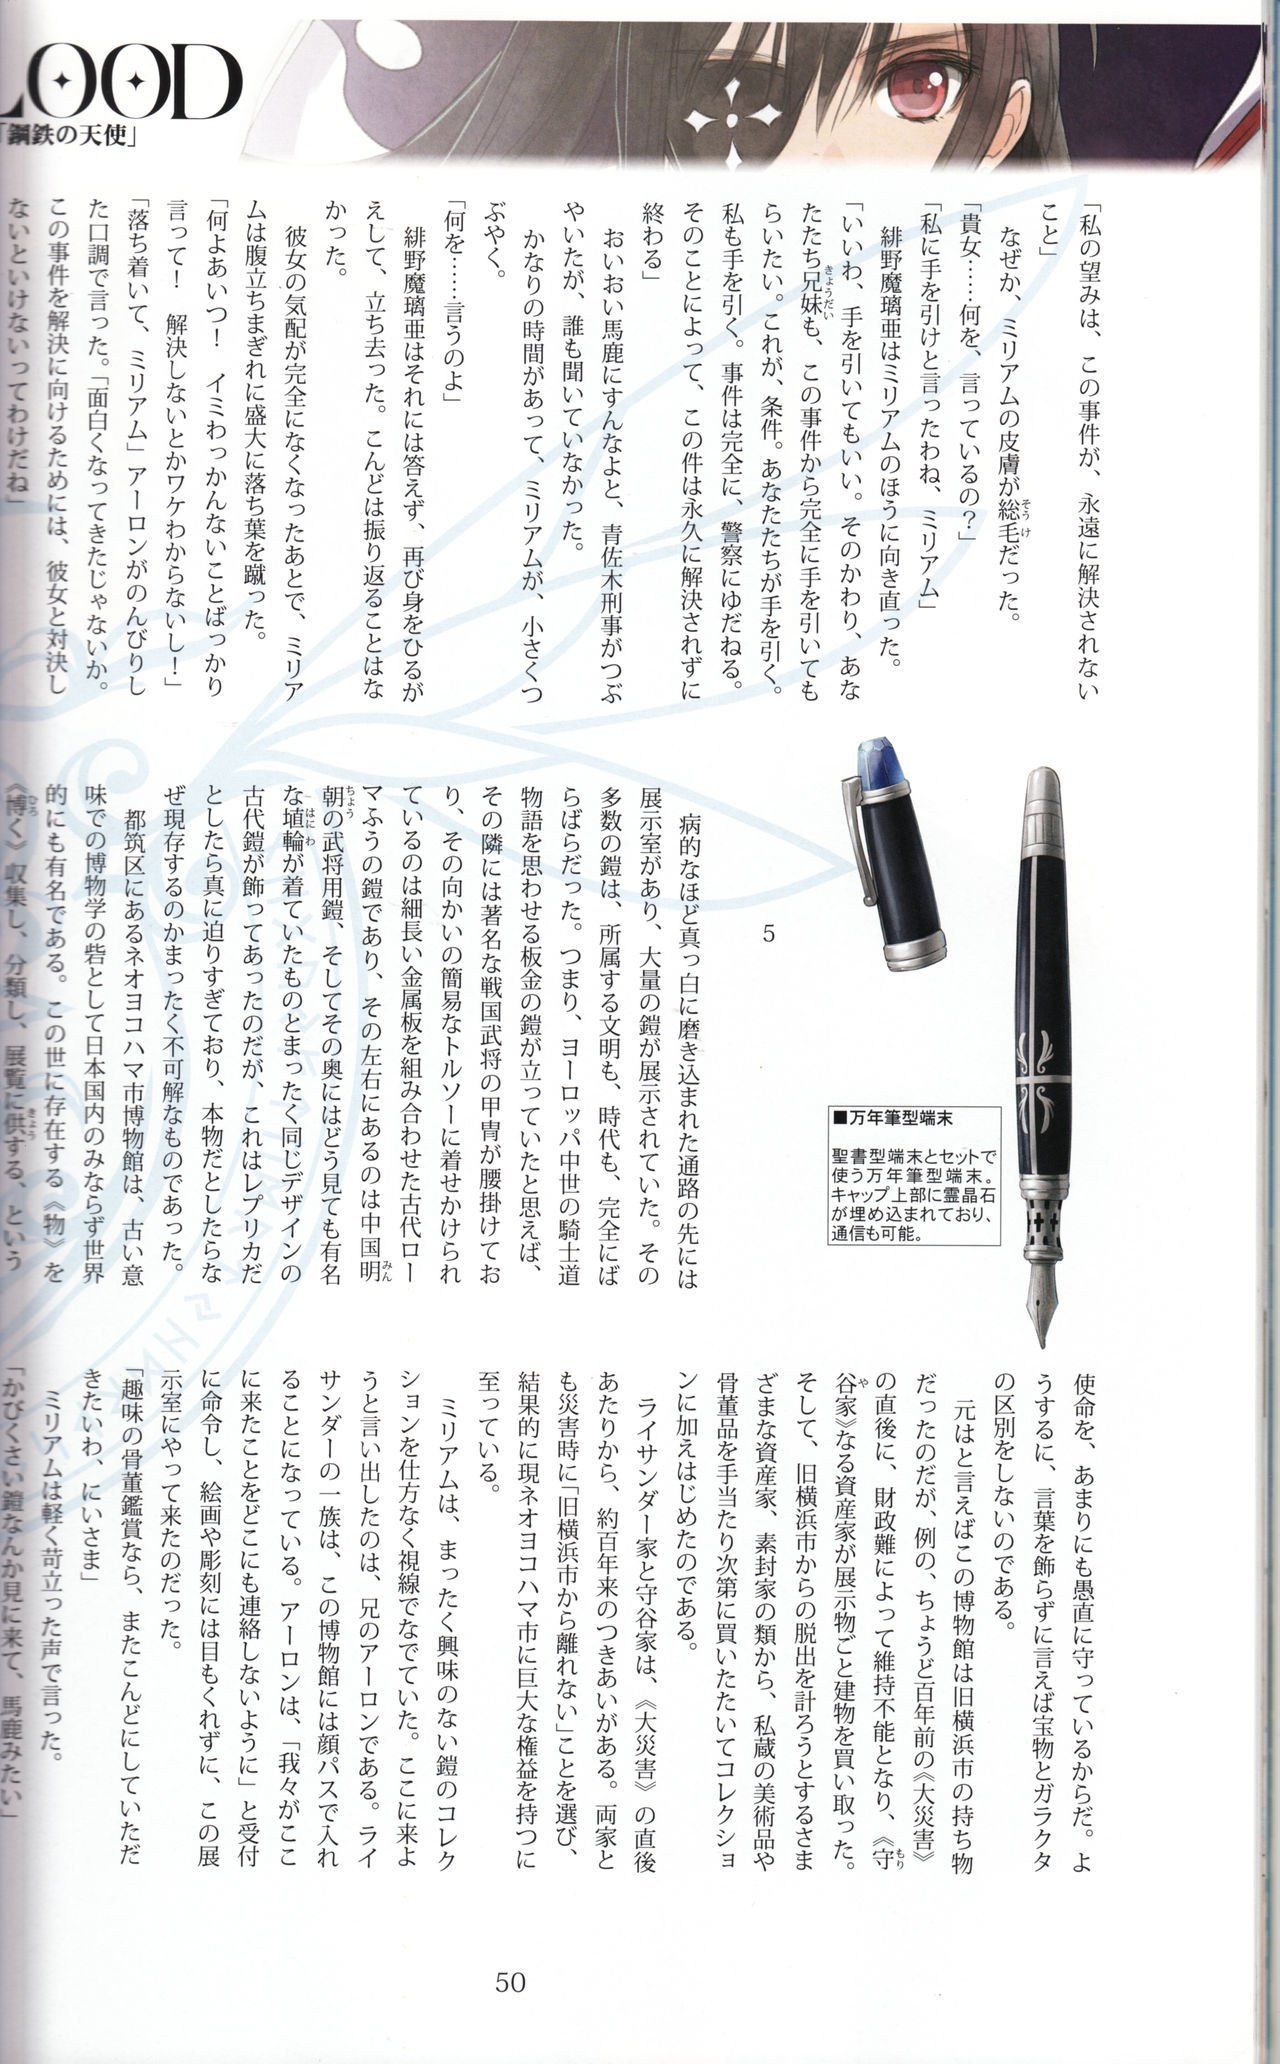 LOOD
「鋼鉄の天使」
「私の望みは、この事件が、永遠に解決されない
こと」
なぜか、ミリアムの皮膚が総毛だった。
「貴女……何を、言っているの？」
「私に手を引けと言ったわね、ミリアム」
緋野魔璃亜はミリアムのほうに向き直った。
「いいわ、手を引いてもいい。そのかわり、あな
たたち兄妹も、この事件から完全に手を引いても
らいたい。これが、条件。あなたたちが手を引く。
私も手を引く。事件は完全に、警察にゆだねる。
そのことによって、この件は永久に解決されずに
終わる」
おいおい馬鹿にすんなよと、青佐木刑事がつぶ
やいたが、誰も聞いていなかった。
かなりの時間があって、ミリアムが、小さくつ
ぶやく。
「何を……言うのよ」
緋野魔璃亜はそれには答えず、再び身をひるが
えして、立ち去った。こんどは振り返ることはな
かった。
彼女の気配が完全になくなったあとで、ミリア
ムは腹立ちまぎれに盛大に落ち葉を蹴った。
「何よあいつ！　イミわっかんないことばっかり
言って！　解決しないとかワケわからないし！」
「落ち着いて、ミリアム」アーロンがのんびりし
た口調で言った。「面白くなってきたじゃないか。
この事件を解決に向けるためには、彼女と対決し
ないといけないってわけだね」
■万年筆型端末
聖書型端末とセットで
使う万年筆型端末。
キャップ上部に霊晶石
が埋め込まれており、
通信も可能。
5
病的なほど真っ白に磨き込まれた通路の先には
展示室があり、大量の鎧が展示されていた。その
多数の鎧は、所属する文明も、時代も、完全にば
らばらだった。つまり、ヨーロッパ中世の騎士道
物語を思わせる板金の鎧が立っていたと思えば、
その隣には著名な戦国武将の甲冑が腰掛けてお
り、その向かいの簡易なトルソーに着せかけられ
ているのは細長い金属板を組み合わせた古代ロー
マふうの鎧であり、その左右にあるのは中国明
朝の武将用鎧、そしてその奥にはどう見ても有名
な埴輪が着ていたものとまったく同じデザインの
古代鎧が飾ってあったのだが、これはレプリカだ
としたら真に迫りすぎており、本物だとしたらな
ぜ現存するのかまったく不可解なものであった。
都筑区にあるネオヨコハマ市博物館は、古い意
味での博物学の砦として日本国内のみならず世界
的にも有名である。この世に存在する《物》を
《博く》収集し、分類し、展覧に供する、という
使命を、あまりにも愚直に守っているからだ。よ
うするに、言葉を飾らずに言えば宝物とガラクタ
の区別をしないのである。
元はと言えばこの博物館は旧横浜市の持ち物
だったのだが、例の、ちょうど百年前の《大災害》
の直後に、財政難によって維持不能となり、《守
谷家》なる資産家が展示物ごと建物を買い取った。
そして、旧横浜市からの脱出を計ろうとするさま
ざまな資産家、素封家の類から、私蔵の美術品や
骨董品を手当たり次第に買いたたいてコレクショ
ンに加えはじめたのである。
ライサンダー家と守谷家は、《大災害》の直後
あたりから、約百年来のつきあいがある。両家と
も災害時に「旧横浜市から離れない」ことを選び、
結果的に現ネオヨコハマ市に巨大な権益を持つに
至っている。
ミリアムは、まったく興味のない鎧のコレク
ションを仕方なく視線でなでていた。ここに来よ
うと言い出したのは、兄のアーロンである。ライ
サンダーの一族は、この博物館には顔パスで入れ
ることになっている。アーロンは、「我々がここ
に来たことをどこにも連絡しないように」と受付
に命令し、絵画や彫刻には目もくれずに、この展
示室にやって来たのだった。
「趣味の骨董鑑賞なら、またこんどにしていただ
きたいわ、にいさま」
ミリアムは軽く苛立った声で言った。
「かびくさい鎧なんか見に来て、馬鹿みたい」
50